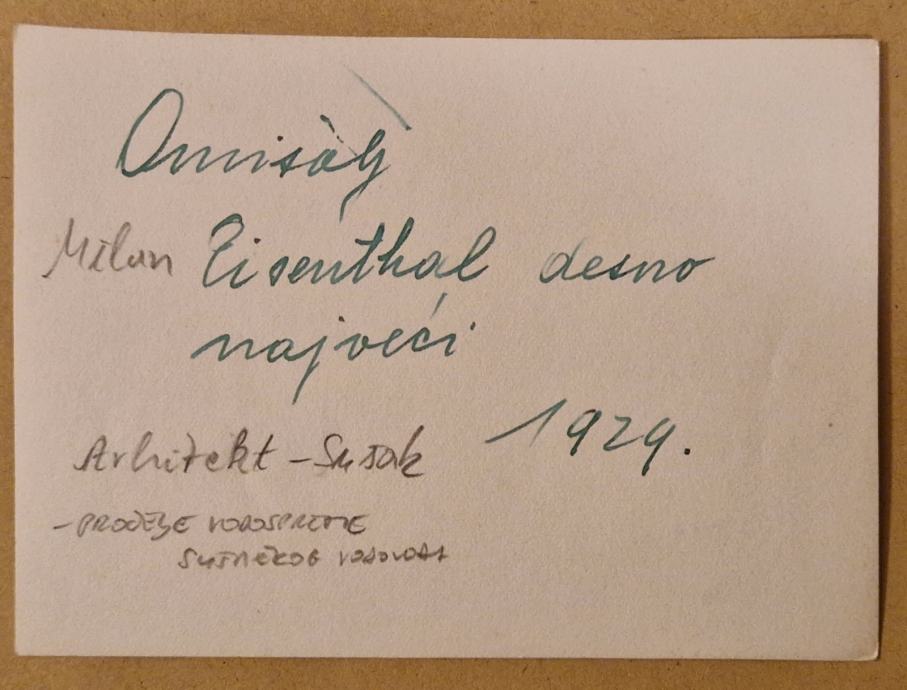 Omišàlj
Milan Eisenthal desno
najveći
1929.
Arhitekt – Sušak
– PROČELJE VODOSPREME
SUŠAČKOG VODOVODA